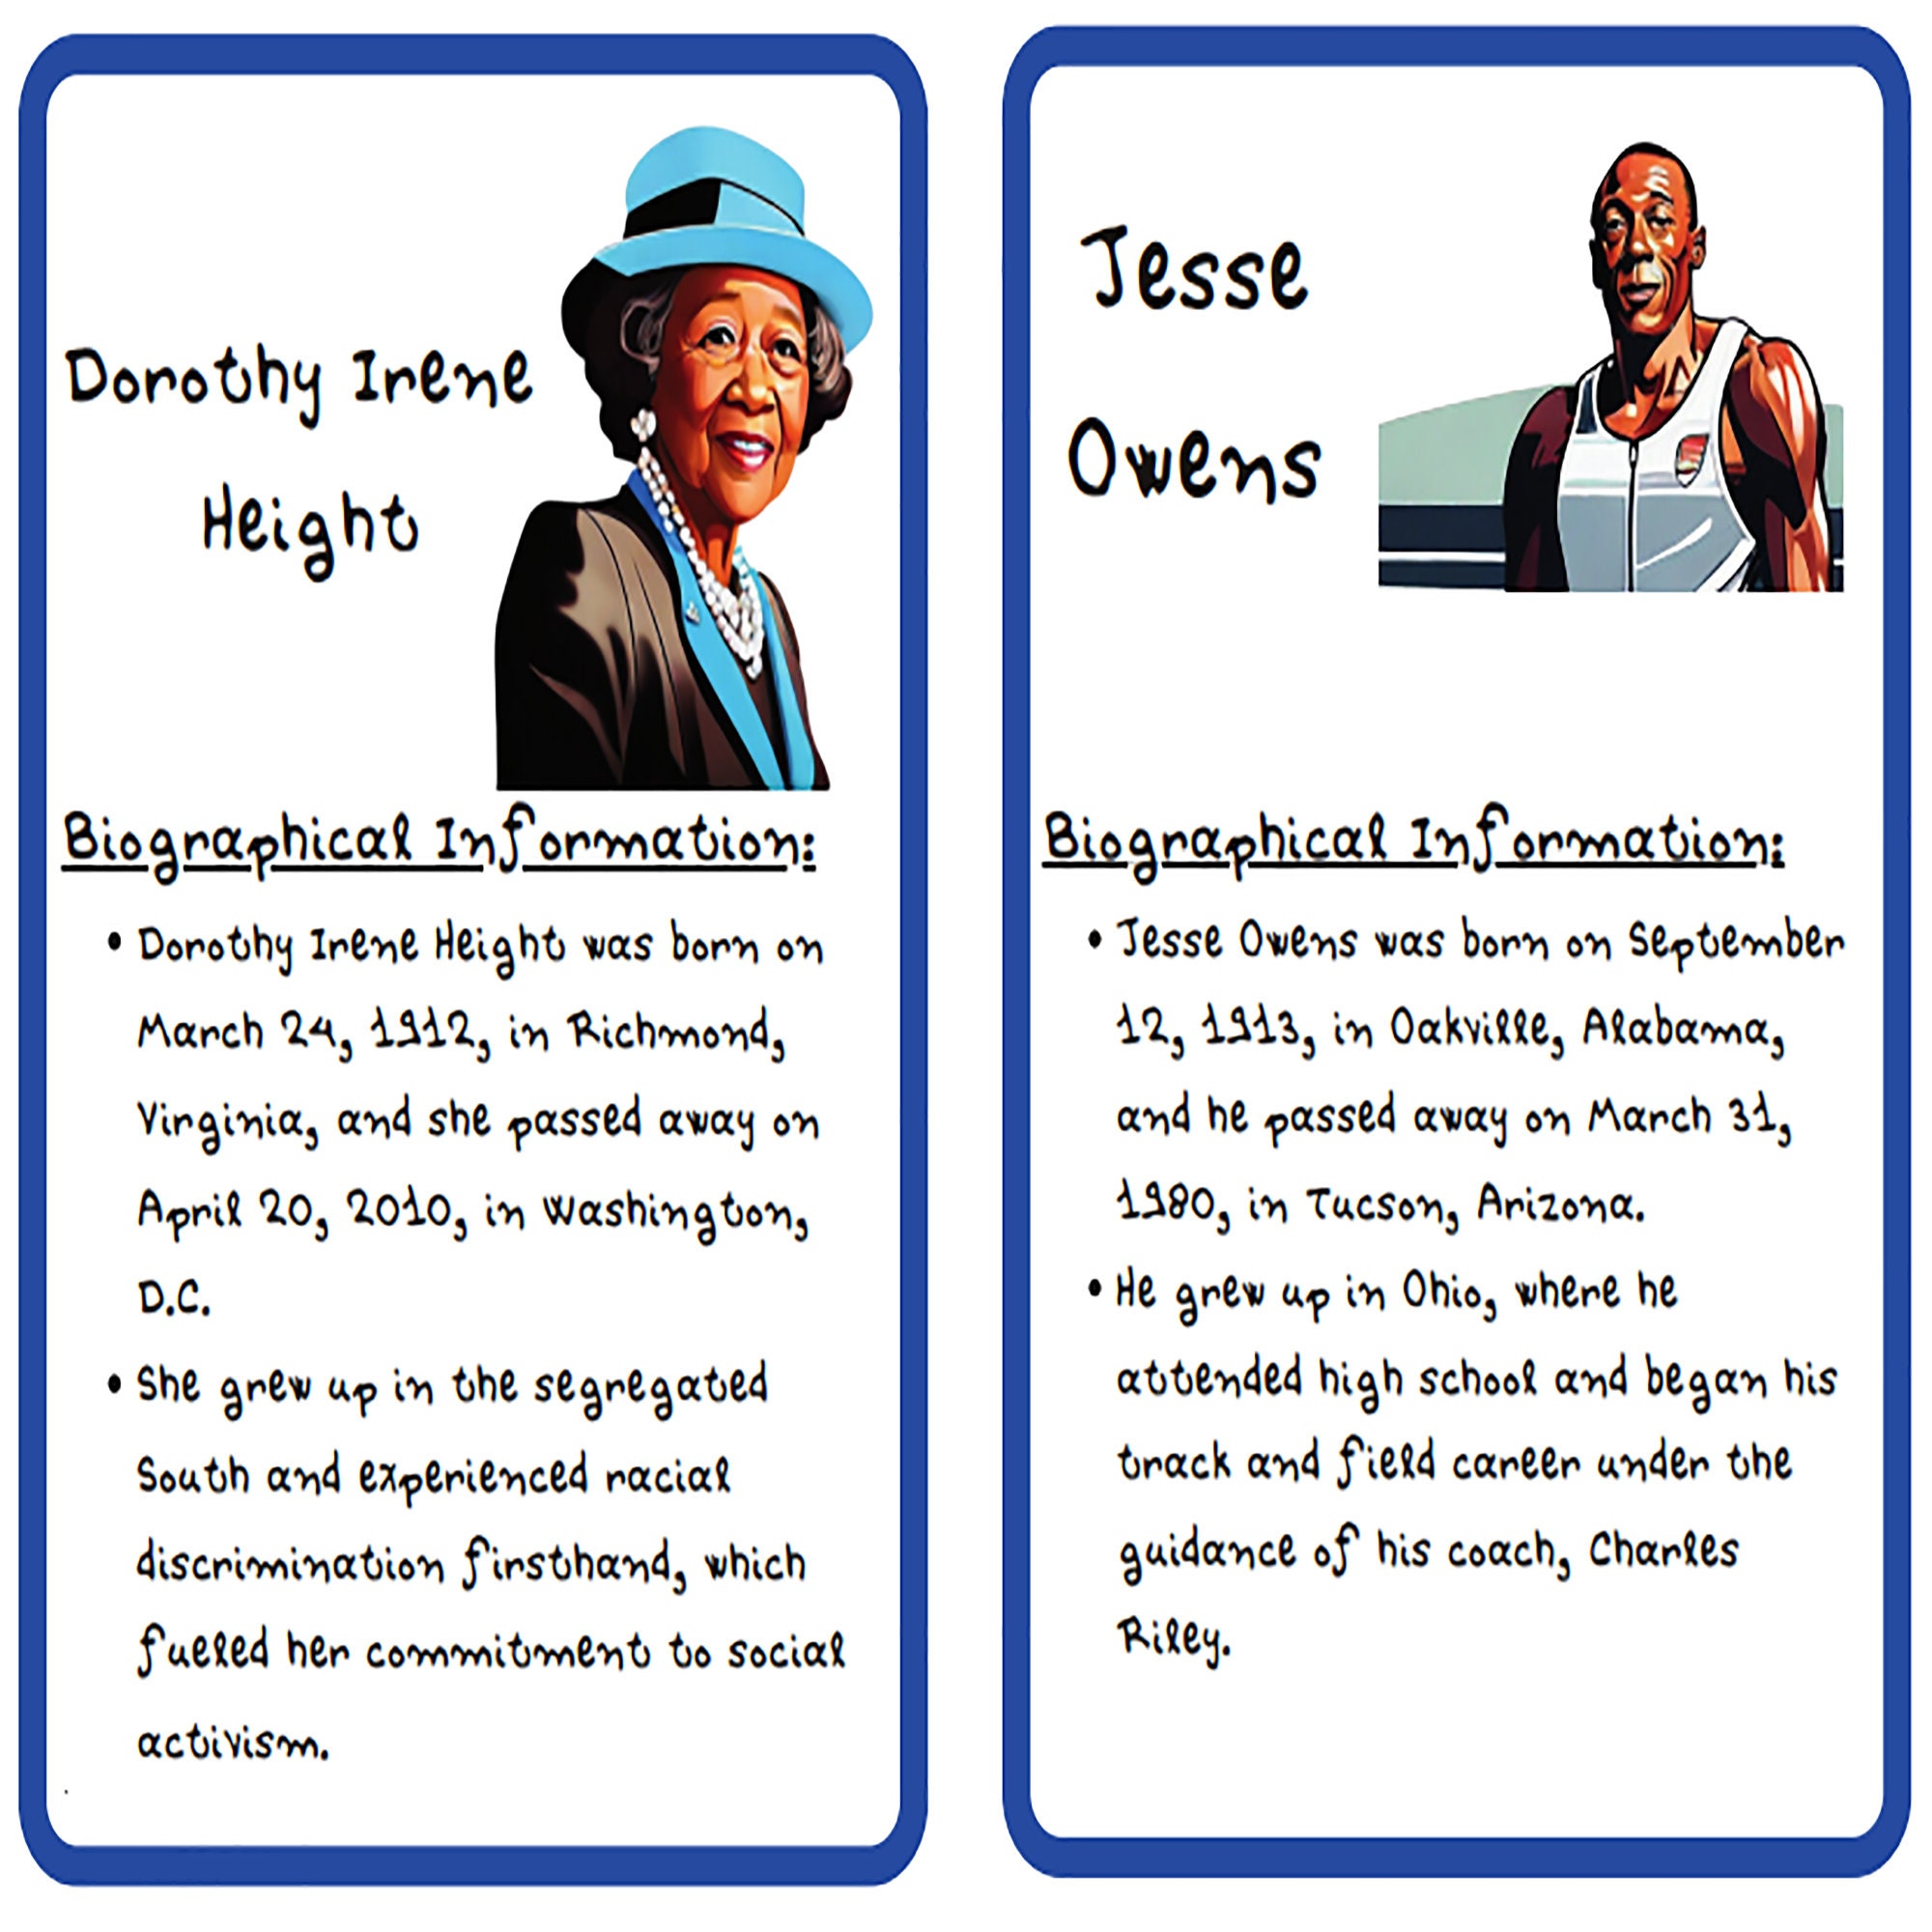 Dorothy Irene
Height
Biographical Information:
• Dorothy Irene Height was born on
March 24, 1912, in Richmond,
Virginia, and she passed away on
April 20, 2010, in Washington,
D.C.
• She grew up in the segregated
South and experienced racial
discrimination firsthand, which
fueled her commitment to social
activism.
.
Jesse
Owens
Biographical Information:
• Jesse Owens was born on September
12, 1913, in Oakville, Alabama,
and he passed away on March 31,
1980, in Tucson, Arizona.
• He grew up in Ohio, where he
attended high school and began his
track and field career under the
guidance of his coach, Charles
Riley.